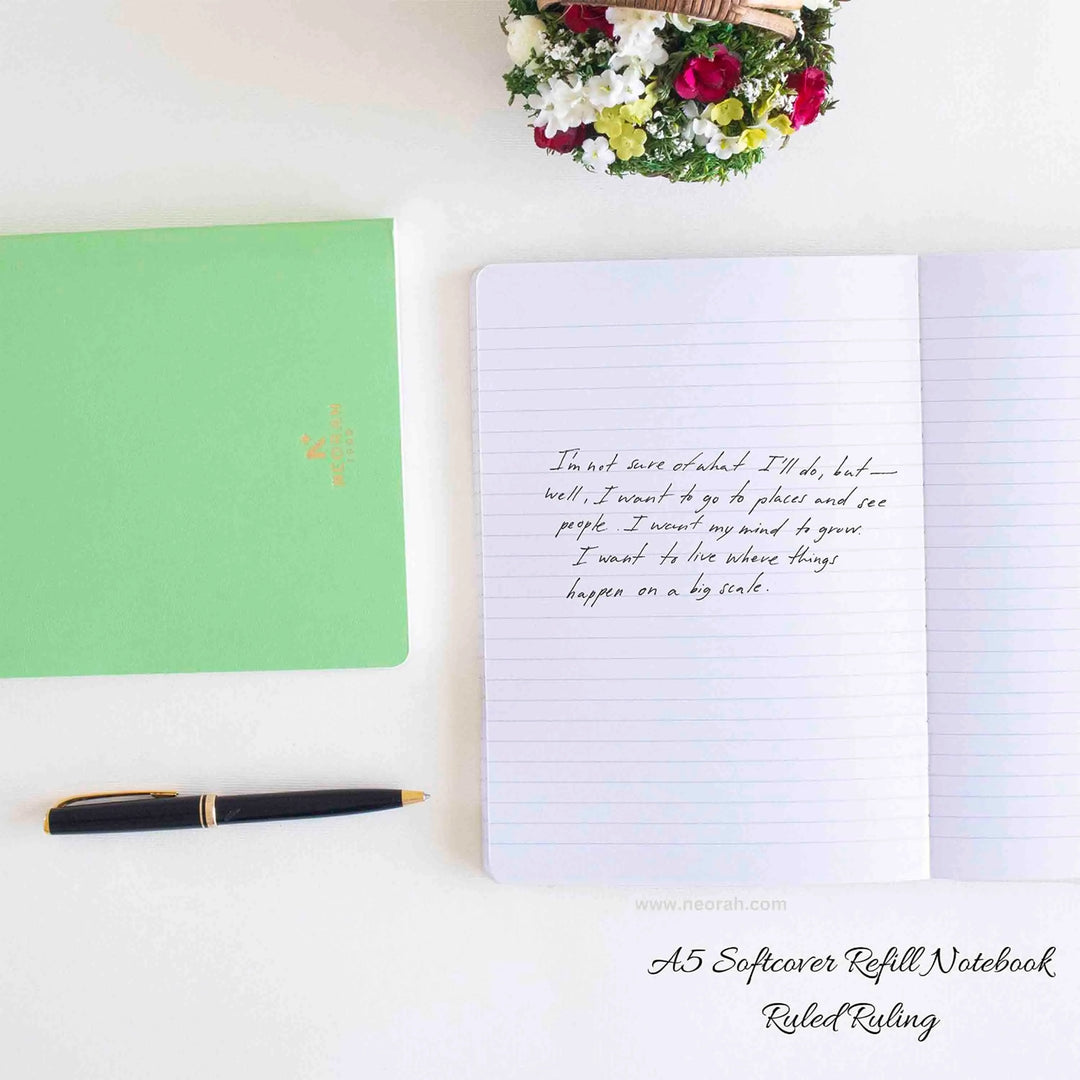 NEORAH
1999
I'm not sure of what I'll do, but —
well, I want to go to places and see
people. I want my mind to grow.
I want to live where things
happen on a big scale.
www.neorah.com
A5 Softcover Refill Notebook
Ruled Ruling